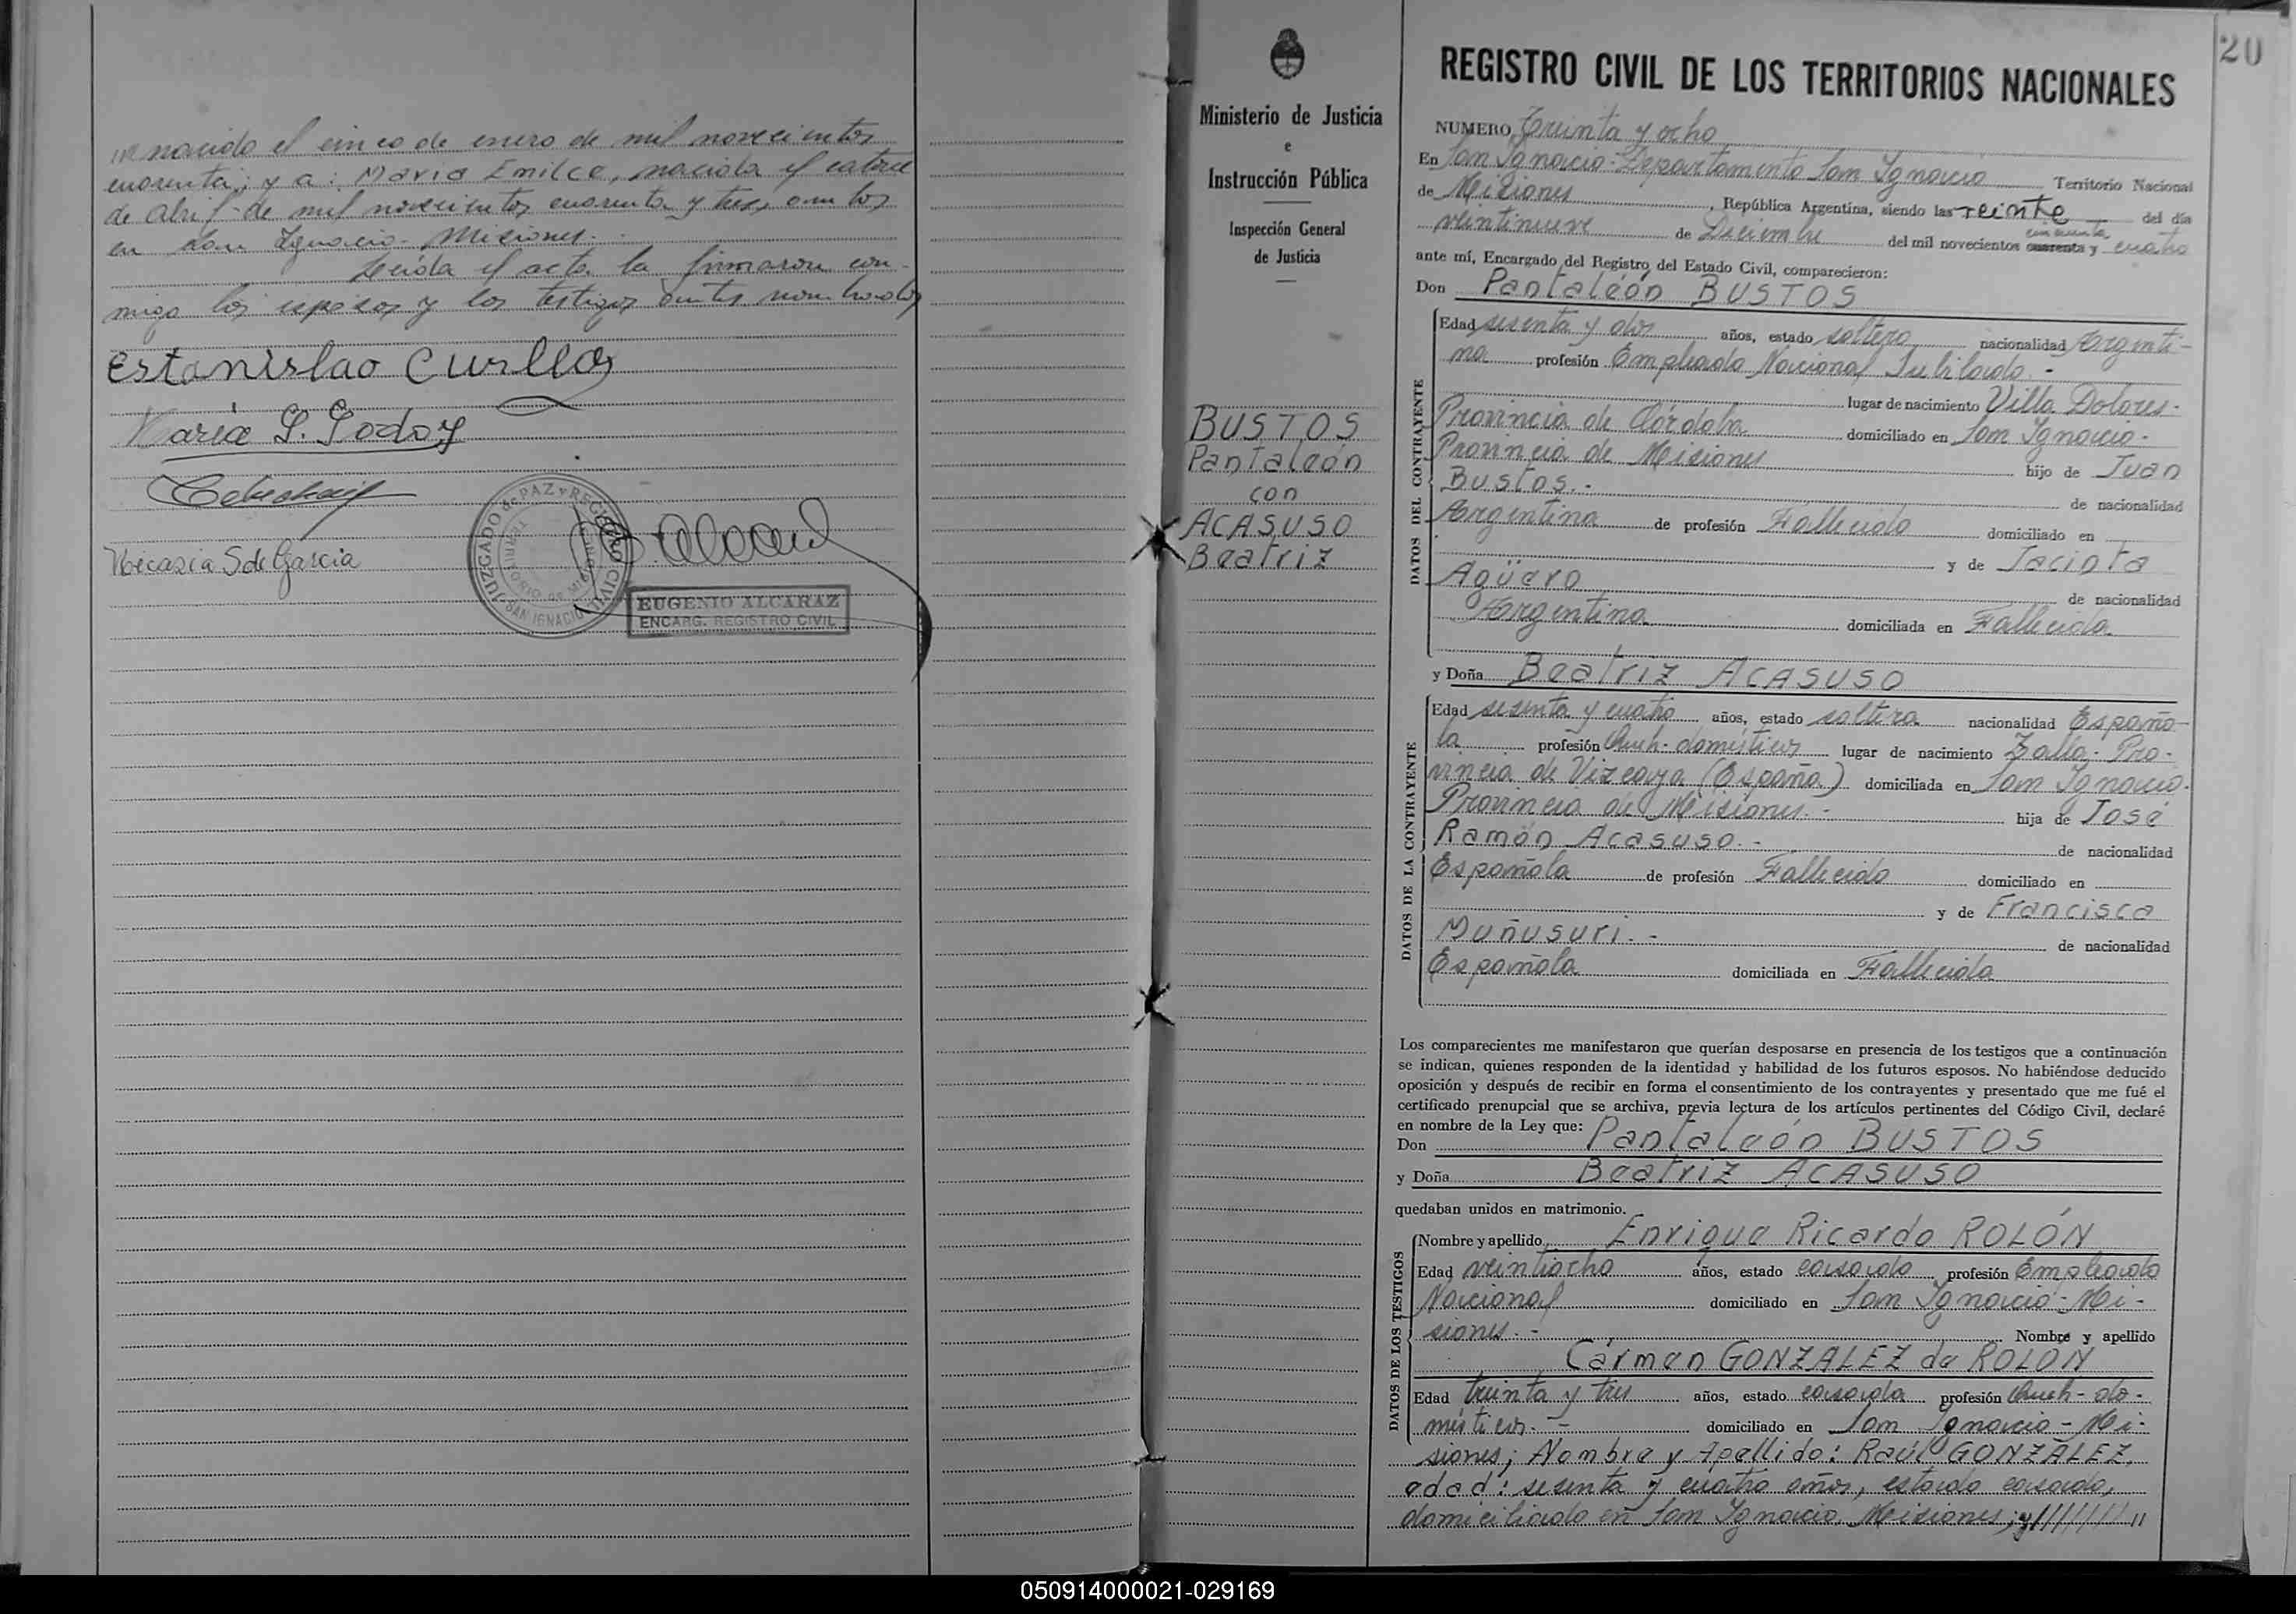 nacido el cinco de enero de mil novecientos
cuarenta; y a: María Emilce, nacida el catorce
de Abril de mil novecientos cuarenta y tres, ambos
en San Ignacio - Misiones.
Leída el acta la firmaron con-
migo los esposos y los testigos antes nombrados
Estanislao Cusllas
María S. Godoy
Nicasia S de Garcia
JUZGADO de PAZ y REGISTRO CIVIL
SAN IGNACIO
TERRITORIO de MISIONES
EUGENIO ALCARAZ
ENCARG. REGISTRO CIVIL
Ministerio de Justicia
e
Instrucción Pública
Inspección General
de Justicia
BUSTOS
Pantaleón
con
ACASUSO
Beatriz
20
REGISTRO CIVIL DE LOS TERRITORIOS NACIONALES
NUMERO Treinta y ocho
En San Ignacio: Departamento San Ignacio Territorio Nacional
de Misiones, República Argentina, siendo las veinte del día
veintinueve de Diciembre del mil novecientos cuarenta y cincuenta cuatro
ante mí, Encargado del Registro del Estado Civil, comparecieron:
Don Pantaleón BUSTOS
DATOS DEL CONTRAYENTE
Edad sesenta y dos años, estado soltero nacionalidad Argenti-
na profesión Empleado Nacional Jubilado.-
lugar de nacimiento Villa Dolores-
Provincia de Córdoba domiciliado en San Ignacio-
Provincia de Misiones hijo de Juan
Bustos.- de nacionalidad
Argentina de profesión Fallecido domiciliado en
y de Jacinta
Agüero de nacionalidad
Argentina domiciliada en Fallecida
y Doña Beatriz ACASUSO
DATOS DE LA CONTRAYENTE
Edad sesenta y cuatro años, estado soltera nacionalidad Españo-
la profesión Queh. domésticos lugar de nacimiento Zalla- Pro-
vincia de Vizcaya (España) domiciliada en San Ignacio.
Provincia de Misiones.- hija de José
Ramón Acasuso.- de nacionalidad
Española de profesión Fallecido domiciliado en
y de Francisca
Muñusuri.- de nacionalidad
Española domiciliada en Fallecida
Los comparecientes me manifestaron que querían desposarse en presencia de los testigos que a continuación
se indican, quienes responden de la identidad y habilidad de los futuros esposos. No habiéndose deducido
oposición y después de recibir en forma el consentimiento de los contrayentes y presentado que me fué el
certificado prenupcial que se archiva, previa lectura de los artículos pertinentes del Código Civil, declaré
en nombre de la Ley que:
Don Pantaleón BUSTOS
y Doña Beatriz ACASUSO
quedaban unidos en matrimonio.
DATOS DE LOS TESTIGOS
Nombre y apellido Enrique Ricardo ROLÓN
Edad veintiocho años, estado casado profesión Empleado
Nacional domiciliado en San Ignacio- Mi-
siones.- Nombre y apellido
Cármen GONZALEZ de ROLON
Edad treinta y tres años, estado casada profesión Queh- do-
mésticos.- domiciliado en San Ignacio - Mi-
siones; Nombre y Apellido: Raúl GONZÁLEZ,
edad: sesenta y cuatro años, estado casado,
domiciliado en San Ignacio, Misiones; y////////"
050914000021-029169